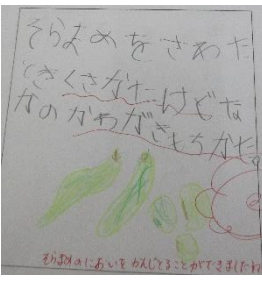 そらまめをさわた
ときくさかたけどな
かのかわがきもちかた。
そらまめのにおいをかんじとることができましたね